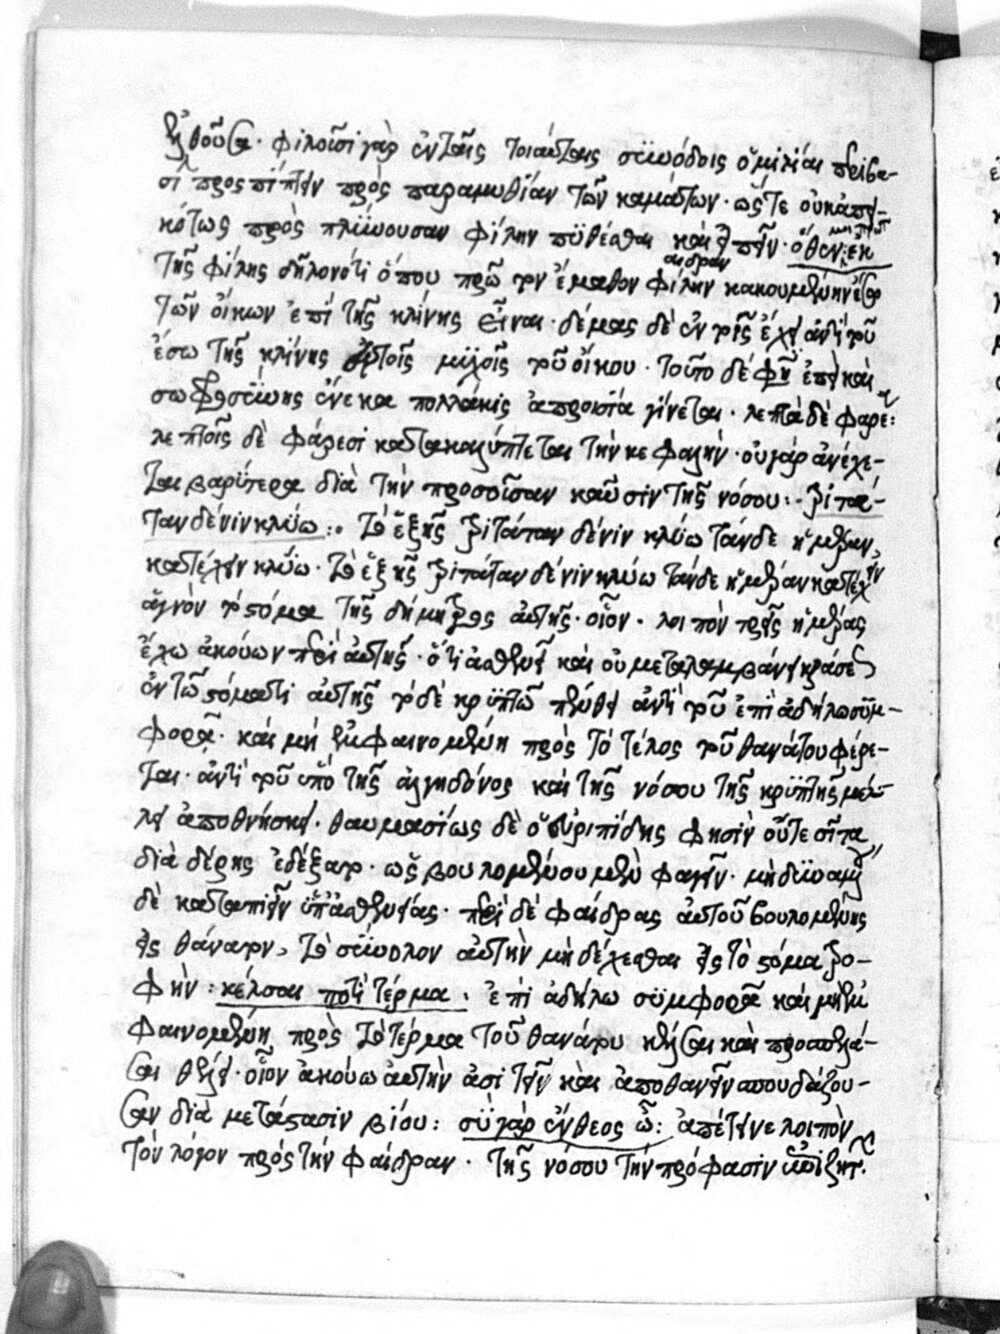 φιλοῦσι γὰρ ἐν ταῖς τοιαύταις συνόδοις ὁμιλίαι
προσπίπτειν πρὸς παραμυθίαν τῶν καμάτων. ὥστε οὐκ ἀπει-
κότως πρὸς πλύνουσαν φίλην πυθέσθαι καὶ εἰπεῖν. ὅθεν
τῆς φίλης δηλονότι ὅπου πρῶτον ἔμαθον φίλην
τῶν οἴκων ἐπὶ τῆς κλίνης εἶναι. δέμας δὲ ἐντὸς ἔχει ἀντὶ τοῦ
ἔσω τῆς κλίνης τοῦ οἴκου. τοῦτο δέ φησι
σωφροσύνης ἕνεκα πολλάκις ἀπροσία γίνεται. λεπτὰ δὲ φάρε:
λεπτοῖς δὲ φάρεσι κατακαλύπτεται τὴν κεφαλήν. οὐ γὰρ ἀνέχε-
ται βαρύτερα διὰ τὴν προσοῦσαν καῦσιν τῆς νόσου:- τριτά-
ταν δέ νιν κλύω:. τὸ ἑξῆς τριτάταν δέ νιν κλύω τάνδε ἡμέραν
κατέχειν κλύω. τὸ ἑξῆς τριτάταν δέ νιν κλύω τάνδε ἡμέραν κατέχειν
ἁγνὸν τὸ στόμα τῆς δήμητρος αὐτῆς. οἷον. λοιπὸν τρεῖς ἡμέρας
ἔχω ἀκούων περὶ αὐτῆς. ὅτι ἀσθενεῖ καὶ οὐ μεταλαμβάνει
ἐν τῷ στόματι αὐτῆς τὸ δὲ κρυπτῷ πένθει ἀντὶ τοῦ ἐπὶ ἀδήλῳ συμ-
φορᾷ. καὶ μὴ ἐμφαινομένῃ πρὸς τὸ τέλος τοῦ θανάτου φέρε-
ται. ἀντὶ τοῦ ὑπὸ τῆς ἀλγηδόνος καὶ τῆς νόσου τῆς κρυπτῆς μέλ-
λει ἀποθνήσκειν. θαυμασίως δὲ ὁ εὐριπίδης φησὶν οὔτε σῖτα
διὰ δέρης ἐδέξατο. ὡς βουλομένου μὲν φαγεῖν. μὴ δυναμένου
δὲ καταπιεῖν ὑπ' ἀσθενείας. περὶ δὲ φαίδρας αὐτοῦ βουλομένης
εἰς θάνατον, τὸ σύνολον αὐτὴν μὴ δέχεσθαι εἰς τὸ στόμα τρο-
φήν: κέλσαι ποτὶ τέρμα. ἐπὶ ἀδήλῳ συμφορᾷ καὶ μὴ ἐμ-
φαινομένῃ πρὸς τὸ τέρμα τοῦ θανάτου καὶ προσπελά-
σαι θέλει. οἷον ἀκούω αὐτὴν ἀσιτεῖν καὶ ἀποθανεῖν σπουδάζου-
σαν διὰ μετάστασιν βίου: σὺ γὰρ ἔνθεος ὦ: ἀπέτεινε λοιπὸν
τὸν λόγον πρὸς τὴν φαίδραν. τῆς νόσου τὴν πρόφασιν